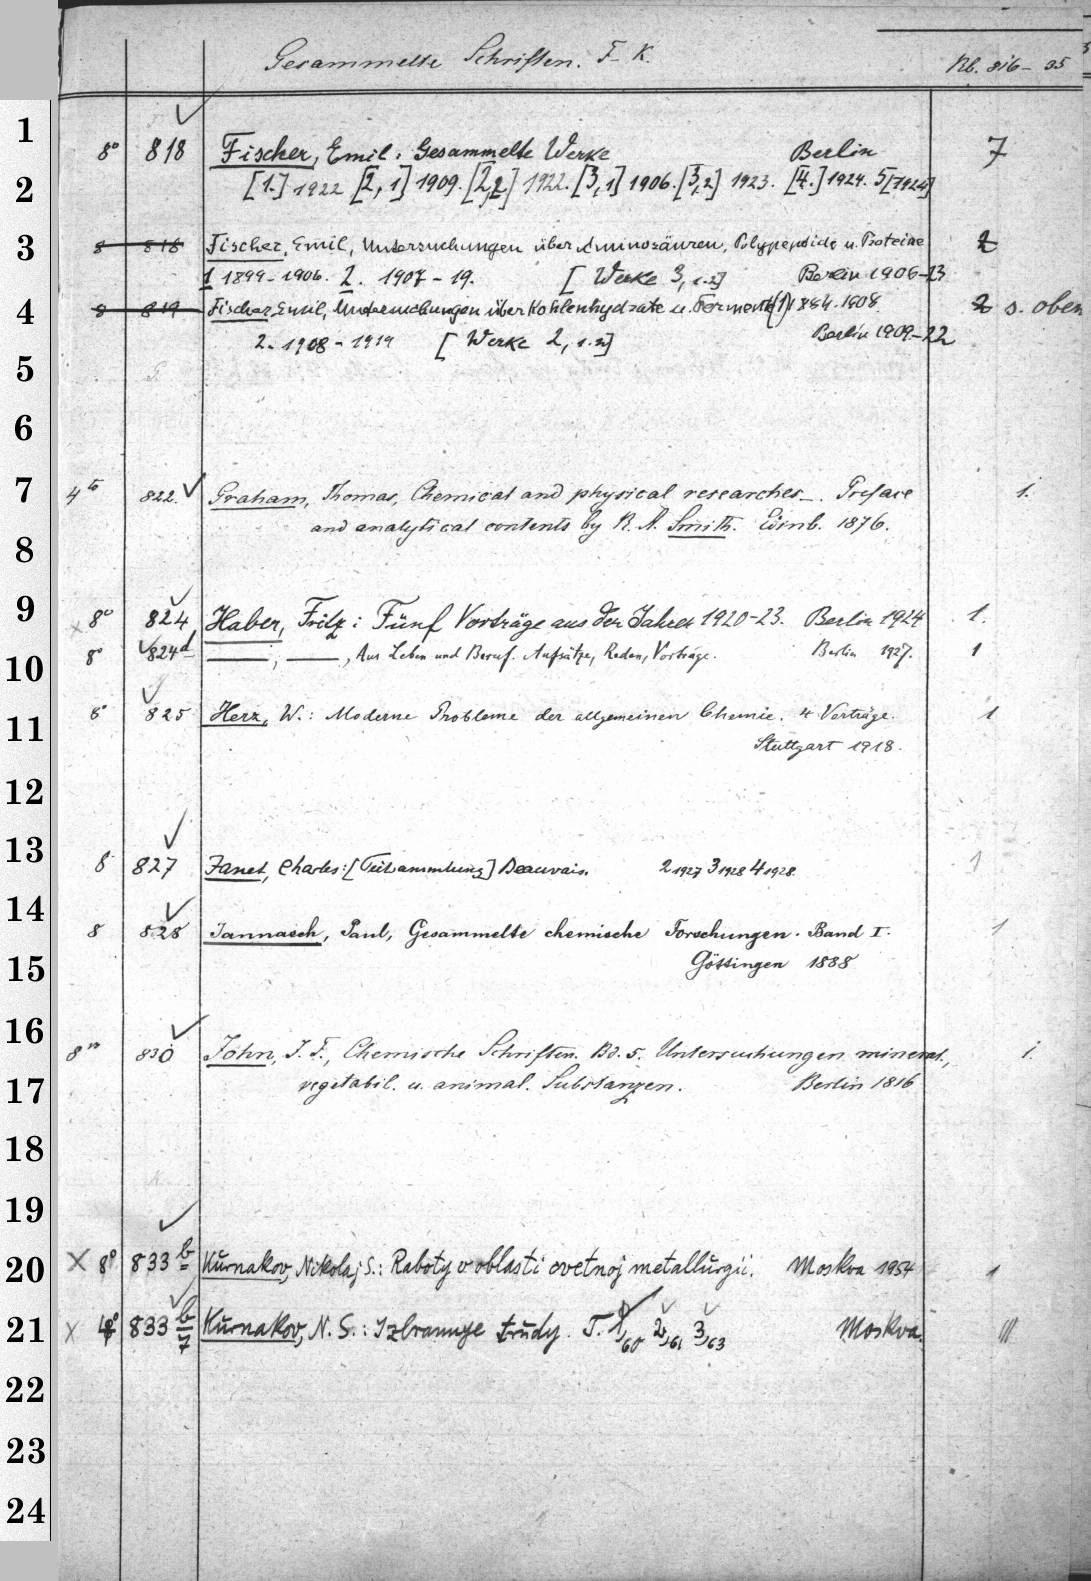 Gesammelte Schriften. F-K. Nb. 816-35
1
8° 818 Fischer, Emil: Gesammelte Werke Berlin 7
2 [1.] 1922 [2,1] 1909. [2,2] 1922. [3,1] 1906. [3,2] 1923. [4.] 1924. 5[1924]
3 8 818 Fischer, Emil, Untersuchungen über Aminosäuren, Polypeptide u. Proteine 2
1 1899-1906. 2. 1907-19. [Werke 3, 1.2] Berlin 1906-23
4 8 819 Fischer, Emil, Untersuchungen über Kohlenhydrate u. Fermente (1) 1884-1908 2 s. oben
2. 1908-1919 [Werke 2, 1.2] Berlin 1909-22
5
6
7 4to 822. Graham, Thomas, Chemical and physical researches_. Preface 1.
and analytical contents by R. A. Smith. Edinb. 1876.
8
9 8° 824 Haber, Fritz: Fünf Vorträge aus den Jahren 1920-23. Berlin 1924 1.
10 8° 824d ——; ——, Aus Leben und Beruf. Aufsätze, Reden, Vorträge. Berlin 1927. 1
11 8° 825 Herz, W.: Moderne Probleme der allgemeinen Chemie. 4 Vorträge. 1
Stuttgart 1918.
12
13 8 827 Janet, Charles: [Teilsammlung] Beauvais. 2 1927 3 1928 4 1928. 1
14 8 828 Jannasch, Paul, Gesammelte chemische Forschungen. Band I. 1
15 Göttingen 1888
16 8vo 830 John, J. F., Chemische Schriften. Bd. 5. Untersuchungen mineral., 1.
17 vegetabil. u. animal. Substanzen. Berlin 1816
18
19
20 X 8° 833 b Kurnakov, Nikolaj S.: Raboty v oblasti cvetnoj metallurgii. Moskva 1954 1
21 X 4° 833 b/7 Kurnakov, N. S.: Izbrannye trudy. T. 1,60 2,61 3,63 Moskva. III
22
23
24